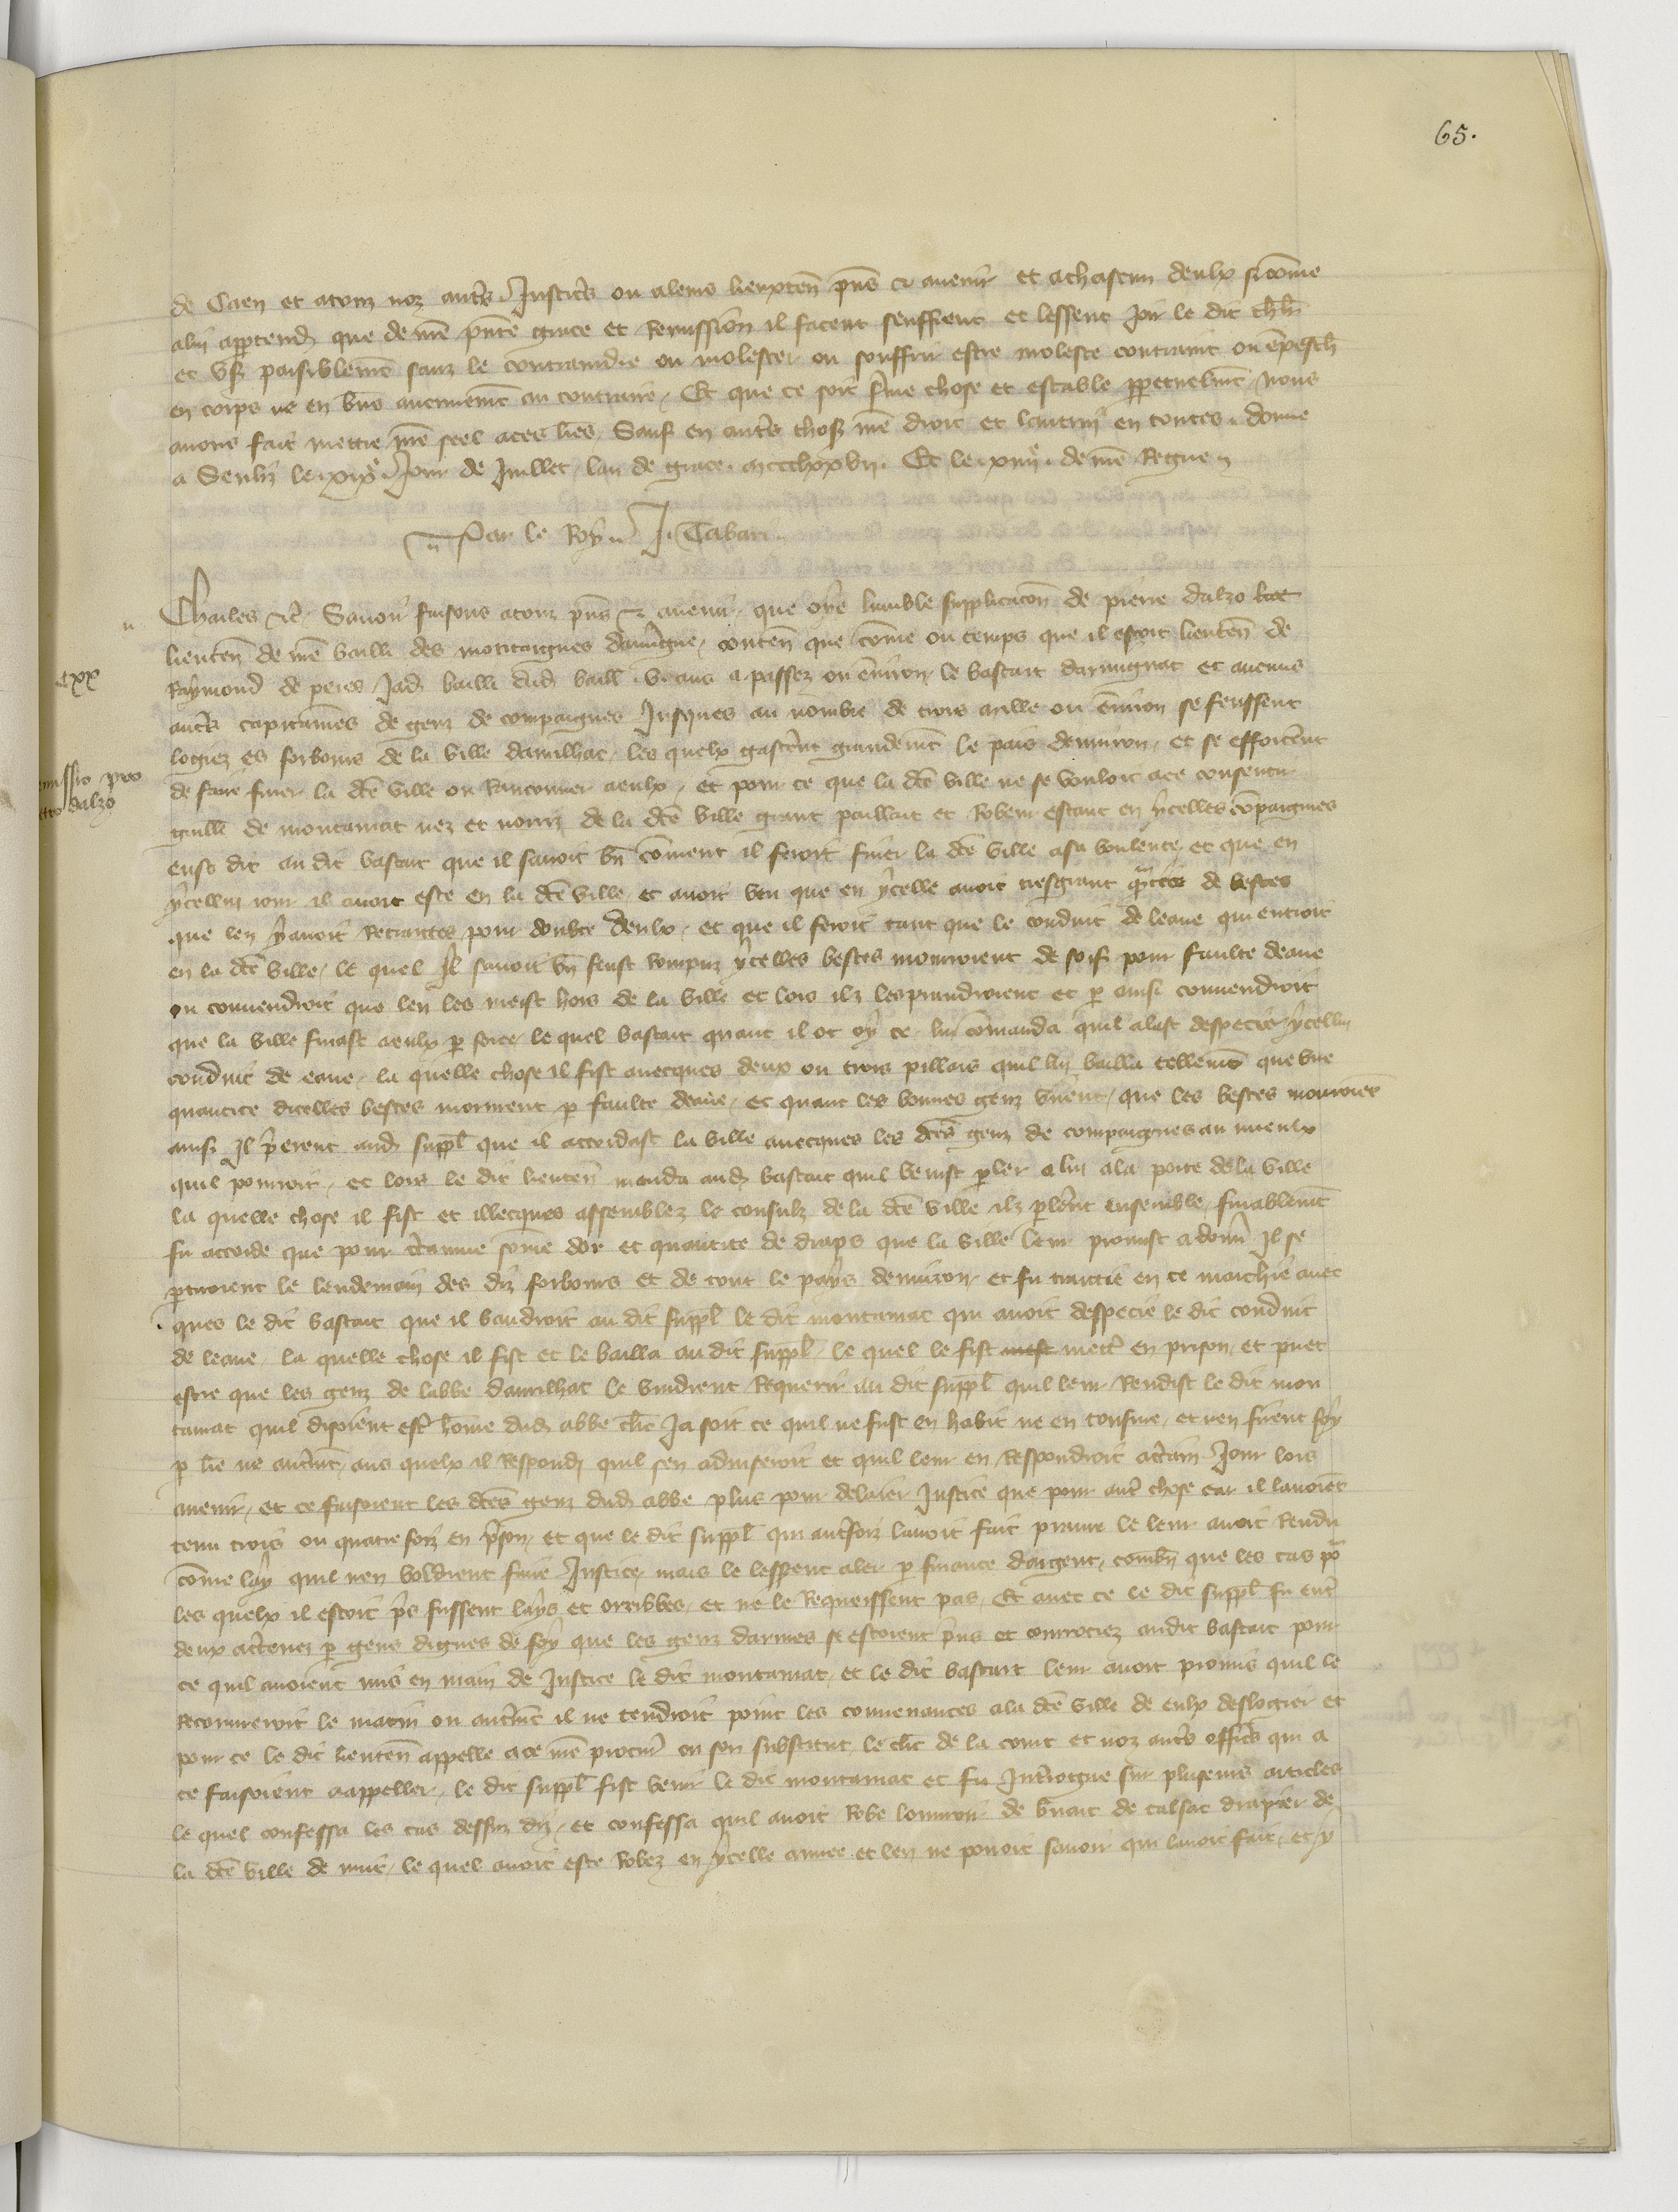 65.
de Caen et a touz noz autres Justiciers ou a leurs lieuxten̄ pn̄s et avenir et a chascun deulx si cōme
a lui appartendra que de nr̄e pn̄te grace et Remission il facent seuffrent et lessent joir le dit chl̄r
et user paisiblemēt sanz le contraindre ou molester ou souffrir estre moleste contraint ou ēpesch
en corps ne en biens aucunemēt au contraire. Et que ce soit ferme chose et estable perpetuelmēt nous
avons fait mettre nr̄e seel a ces lr̄es. Sauf en autres choses nr̄e droit et lautrui en toutes. donne
a Senliz le .xixe. Jour de Juillet lan de grace .m ccc lxxvii. Et le .xiiiie. de nr̄e Regne
Par le Roy J. Tabari
Charles etc̄. Savoir faisons a touz pn̄s et avenir que oye lumble supplicacōn de pierre dalzo
lieuten̄ de nr̄e bailli des montaignes dauvergne, conten̄ que cōme ou temps que il estoit lieuten̄ de
Raymond de peres Jadis bailli dudit baill. vi ans a passez ou environ le bastart darmignac et aucuns
autres capitaines de genz de compaignes Jusques au nombre de trois mille ou environ se feussent
logiez es forbours de la ville daurilhac, les quelx gasterent grandemēt le pais denviron, et se efforcerent
de faire finer la dc̄e ville ou Ranconner a eulx, et pour ce que la dc̄e ville ne se vouloit a ce consentir
guill̄e de montamat nez et nourriz de la dc̄e ville grant paillart et Robeur estant en ycelles cōpaignes
eust dit au dit bastart que il savoit bn̄ cōment il feroit finer la dc̄e ville a sa voulente, et que en
ycellui jour il avoit este en la dc̄e ville et avoit veu que en ycelle avoit tresgrant quātite de bestes
que len y avoit Retraittes pour doubte deulx, et que il feroit tant que le conduit de leaue qui entroit
en la dc̄e ville, le quel Il savoit bn̄ feust rompuz ycelles bestes mourroient de soif pour faulte deaue
ou convendroit que len les meist hors de la ville et lors ilz les prandroient et par ainsi convendroit
que la ville finast a eulx par force, le quel bastart quant il ot oy ce lui cōmanda quil alast despecier ycellui
conduit de eaue, la quelle chose il fist avecques deux ou trois pillars quil lui bailla tellemēt que une
quantite dicelles bestes morurent par faulte deaue, et quant les bonnes genz virent, que les bestes mouroiēt
ainsi Il prierent audit suppl̄ que il accordast la ville avecques les dc̄es genz de compaignes au mieulx
quil pourroit, et lors le dit lieuten̄ manda audit bastart quil venist parler a lui a la porte de la ville
la quelle chose il fist et illecques assemblez le consulz de la dc̄e ville ilz parlerent ensemble, finablemēt
fu accorde que pour certaine sōme dor et quantite de draps que la ville leur promist a donner Il se
partiroient le lendemain des diz forbours et de tout le pays denviron, et fu traittie en ce marchie avec
ques le dit bastart que il baudroit au dit suppl̄ le dit montamat qui avoit despecie le dit conduit
de leaue, la quelle chose il fist et le bailla au dit suppl̄, le quel le fist mettre en prison, et puet
estre que les genz de labbe daurilhac le vindrent Requerir au dit suppl̄ quil leur Rendist le dit mon
tamat quil disoient estre hōme dudit abbe clerc Ja soit ce quil ne fust en habit ne en tonsure, et nen firent foy
par lr̄e ne autremēt, aus quelx il Respondi quil sen adviseroit et quil leur en Respondroit a certain Jour lors
avenir, et ce faisoient les dc̄es genz dudit abbe plus pour delaier Justice que pour autre chose car il lavoiēt
tenu trois ou quatre foiz en prison, et que le dit suppl̄ qui autresfoiz lavoit fait prenre le leur avoit Rendu
cōme lay quil nen voldrent faire Justice, mais le lessierent aler par finance dargent, combn̄ que les cas pour
les quelx il estoit pris fussent lays et orribles, et ne le Requeissent pas. Et avec ce le dit suppl̄ fu entre
deux acertenez par gens dignes de foy que les genz darmes se estoient prins et courrociez audit bastart pour
ce quil avoient mis en main de Justice le dit montamat, et le dit bastart leur avoit promis quil le
Recouvreroit le matin ou autremēt il ne tendroit point les convenances a la dc̄e ville de eulx deslogier et
pour ce le dit lieuten̄ appelle a ce nr̄e procur̄ ou son substitut, le clerc de la court et noz autres officiers qui a
ce faisoient a appeller, le dit suppl̄ fist venir le dit montamat et fu Interrogue sur plusieurs articles
le quel confessa les cas dessuz diz, et confessa quil avoit Robe louvroir de bernart de calsac drapier de
la dc̄e ville de nuit, le quel avoit este Robez en ycelle annee et len ne povoit savoir qui lavoit fait, et y